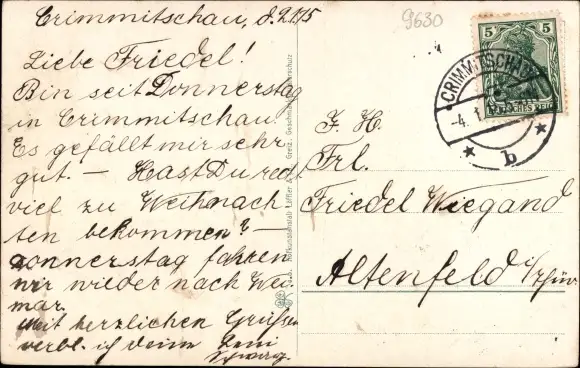 Crimmitschau, d. 2.1.15
Liebe Friedel!
Bin seit Donnerstag
in Crimmitschau.
Es gefällt mir sehr
gut. — Hast Du recht
viel zu Weihnach
ten bekommen? —
Donnerstag fahren
wir wieder nach Wei
mar.
Mit herzlichen Grüßen
verbl. ich Deine
9630
5 5
DEUTSCHES REICH
CRIMMITSCHAU
-4. 1.
* b *
F. H.
Frl.
Friedel Wiegand
Altenfeld i/Thür